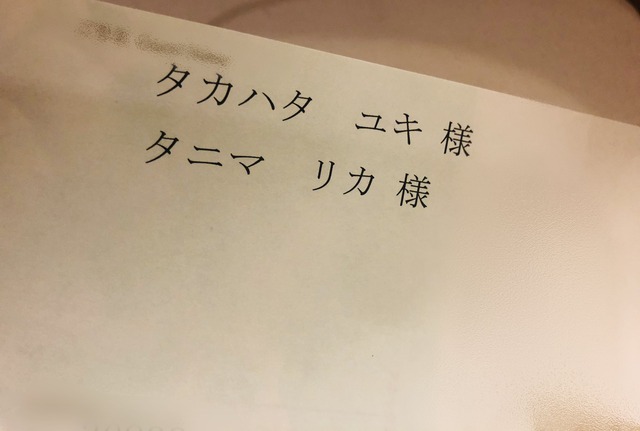 タカハタ　ユキ 様
タニマ　リカ 様